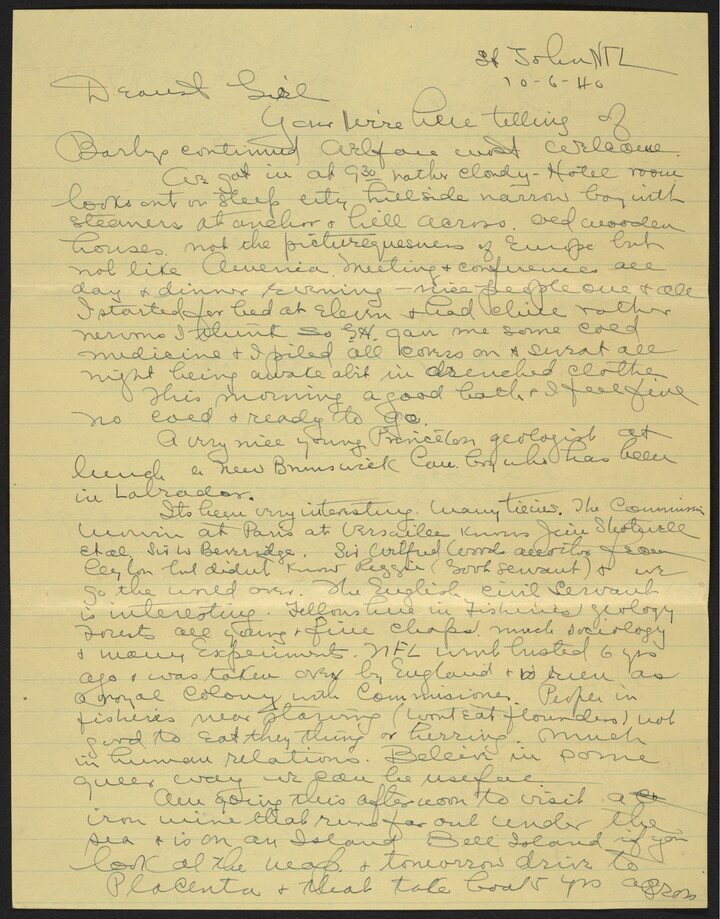 St John NFL
10-6-40
Dearest Girl
Your wire here telling of
Barbys continued welfare most welcome.
We got in at 9 30 rather cloudy - Hotel room
looks out on steep city hillside narrow bay with
steamers at anchor & hill across. Old wooden
houses. not the picturequesness of Europe but
not like America. Meeting & conferences all
day & dinner & evening - nice people one & all
I started for bed at Eleven & had chill rather
nervous I think so gave me some cold
medicine & I piled all covers on & sweat all
night being awake abit in drenched clothe
This morning a good bath & I feel fine
no cold & ready to go.
A very nice young Princeton geologist at
lunch a New Brunswick Can. boy who has been
in Labrador.
Its been very interesting. Many times. The Commissi
at Paris at Versailles knows Jim Shotwell
et al, Sir W Beveridge. Sir Wilfred Woods another from
Ceylon but didn't know Reggie (Govt Servant) & we
go the world over. The English civil Servant
is interesting. Fellows here in Fisheries geology
Forests all young & fine chaps. much sociology
& many Experiments. NFL went busted 6 yrs
ago & was taken over by England & is run as
a royal Colony with Commissiones. People in
fisheries near starving (wont eat flounders) not
good to eat they think or herring. Much
in human relations. Beleive in some
queer way we can be useful
Am going this afternoon to visit a
iron mine that runs far out under the
sea & is on an Island Bell Island if you
look at the map & tomorrow drive to
Placenta & that take boat yrs across